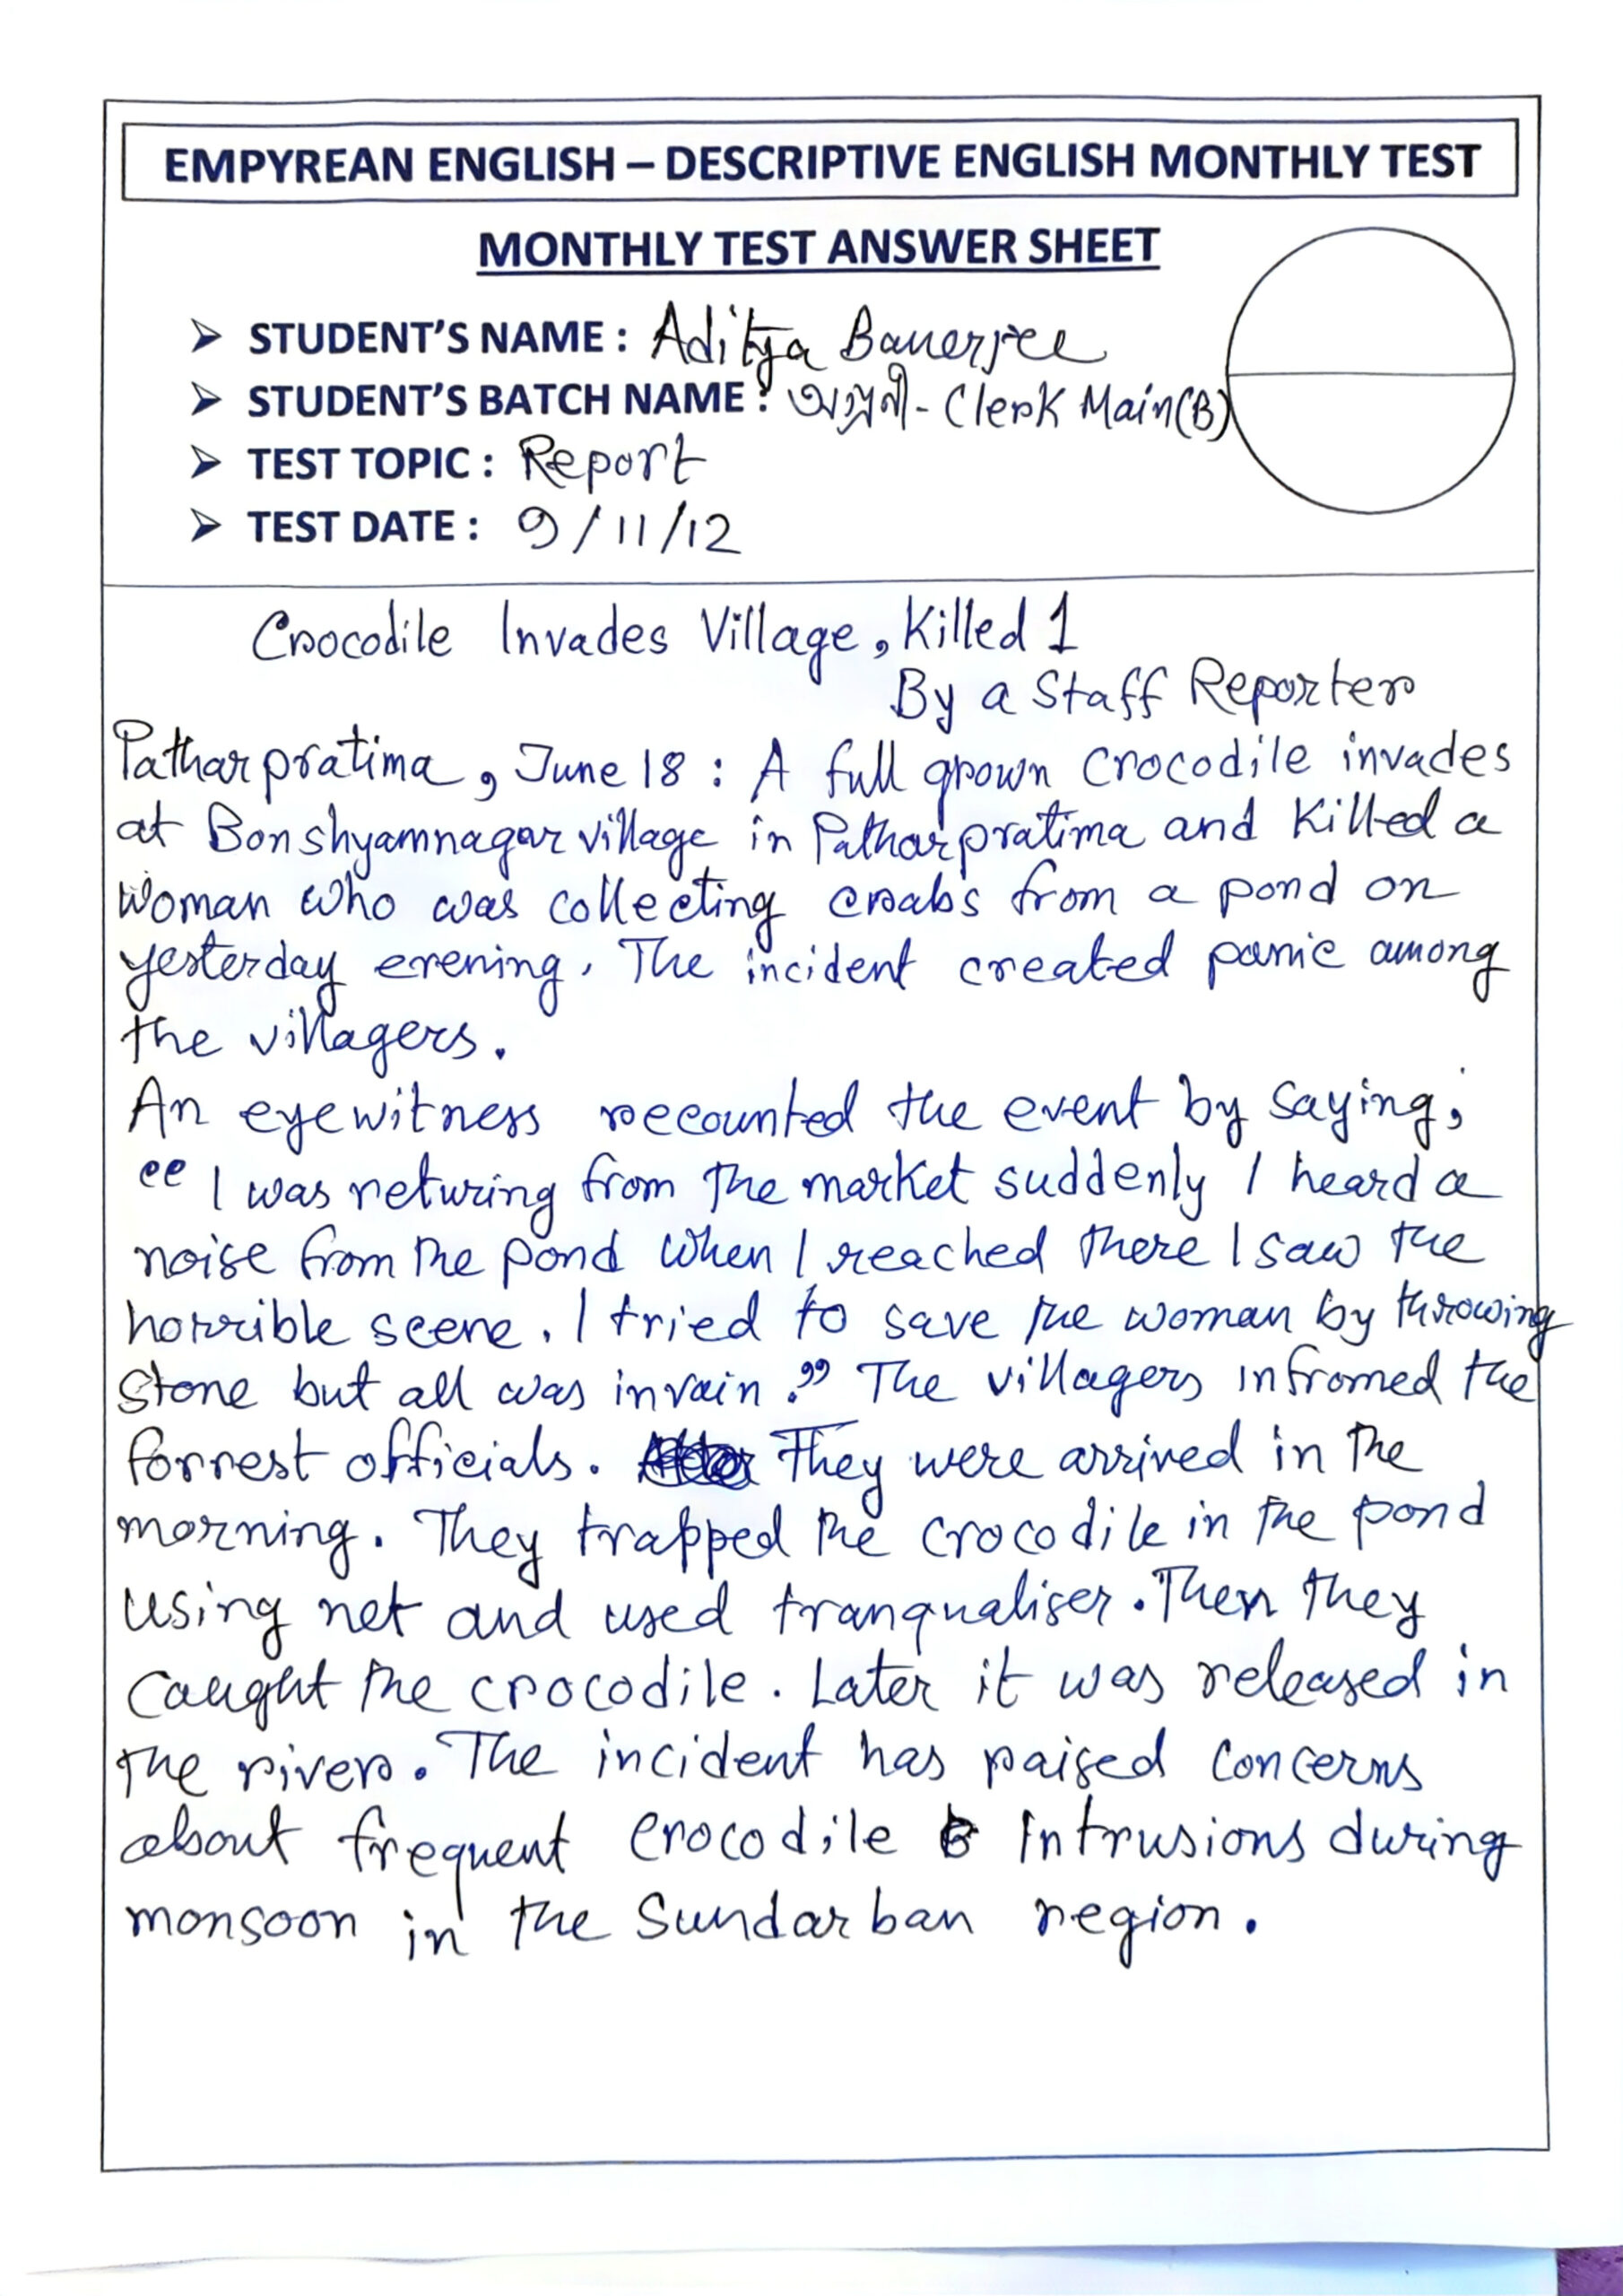 EMPYREAN ENGLISH – DESCRIPTIVE ENGLISH MONTHLY TEST
MONTHLY TEST ANSWER SHEET
➤ STUDENT'S NAME : Aditya Banerjee
➤ STUDENT'S BATCH NAME : অগ্রণী - Clerk Main(B)
➤ TEST TOPIC : Report
➤ TEST DATE : 9/11/12
Crocodile Invades Village, Killed 1
By a Staff Reporter
Patharpratima, June 18 : A full grown crocodile invades
at Bonshyamnagar village in Patharpratima and killed a
woman who was collecting crabs from a pond on
yesterday evening. The incident created panic among
the villagers.
An eyewitness recounted the event by saying;
“ I was returing from the market suddenly I heard a
noise from the pond when I reached there I saw the
horrible scene. I tried to save the woman by throwing
stone but all was invain.” The villagers infromed the
forrest officials. They were arrived in the
morning. They trapped the crocodile in the pond
using net and used tranqualiser. Then they
caught the crocodile. Later it was released in
the river. The incident has raised concerns
about frequent crocodile intrusions during
monsoon in the Sundarban region.